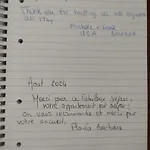 Thank you for hosting us. We enjoyed
our stay
USA
Août 2024
Merci pour ce fabuleux séjour
votre appartement est super
On vous recommande et merci pour
votre accueil